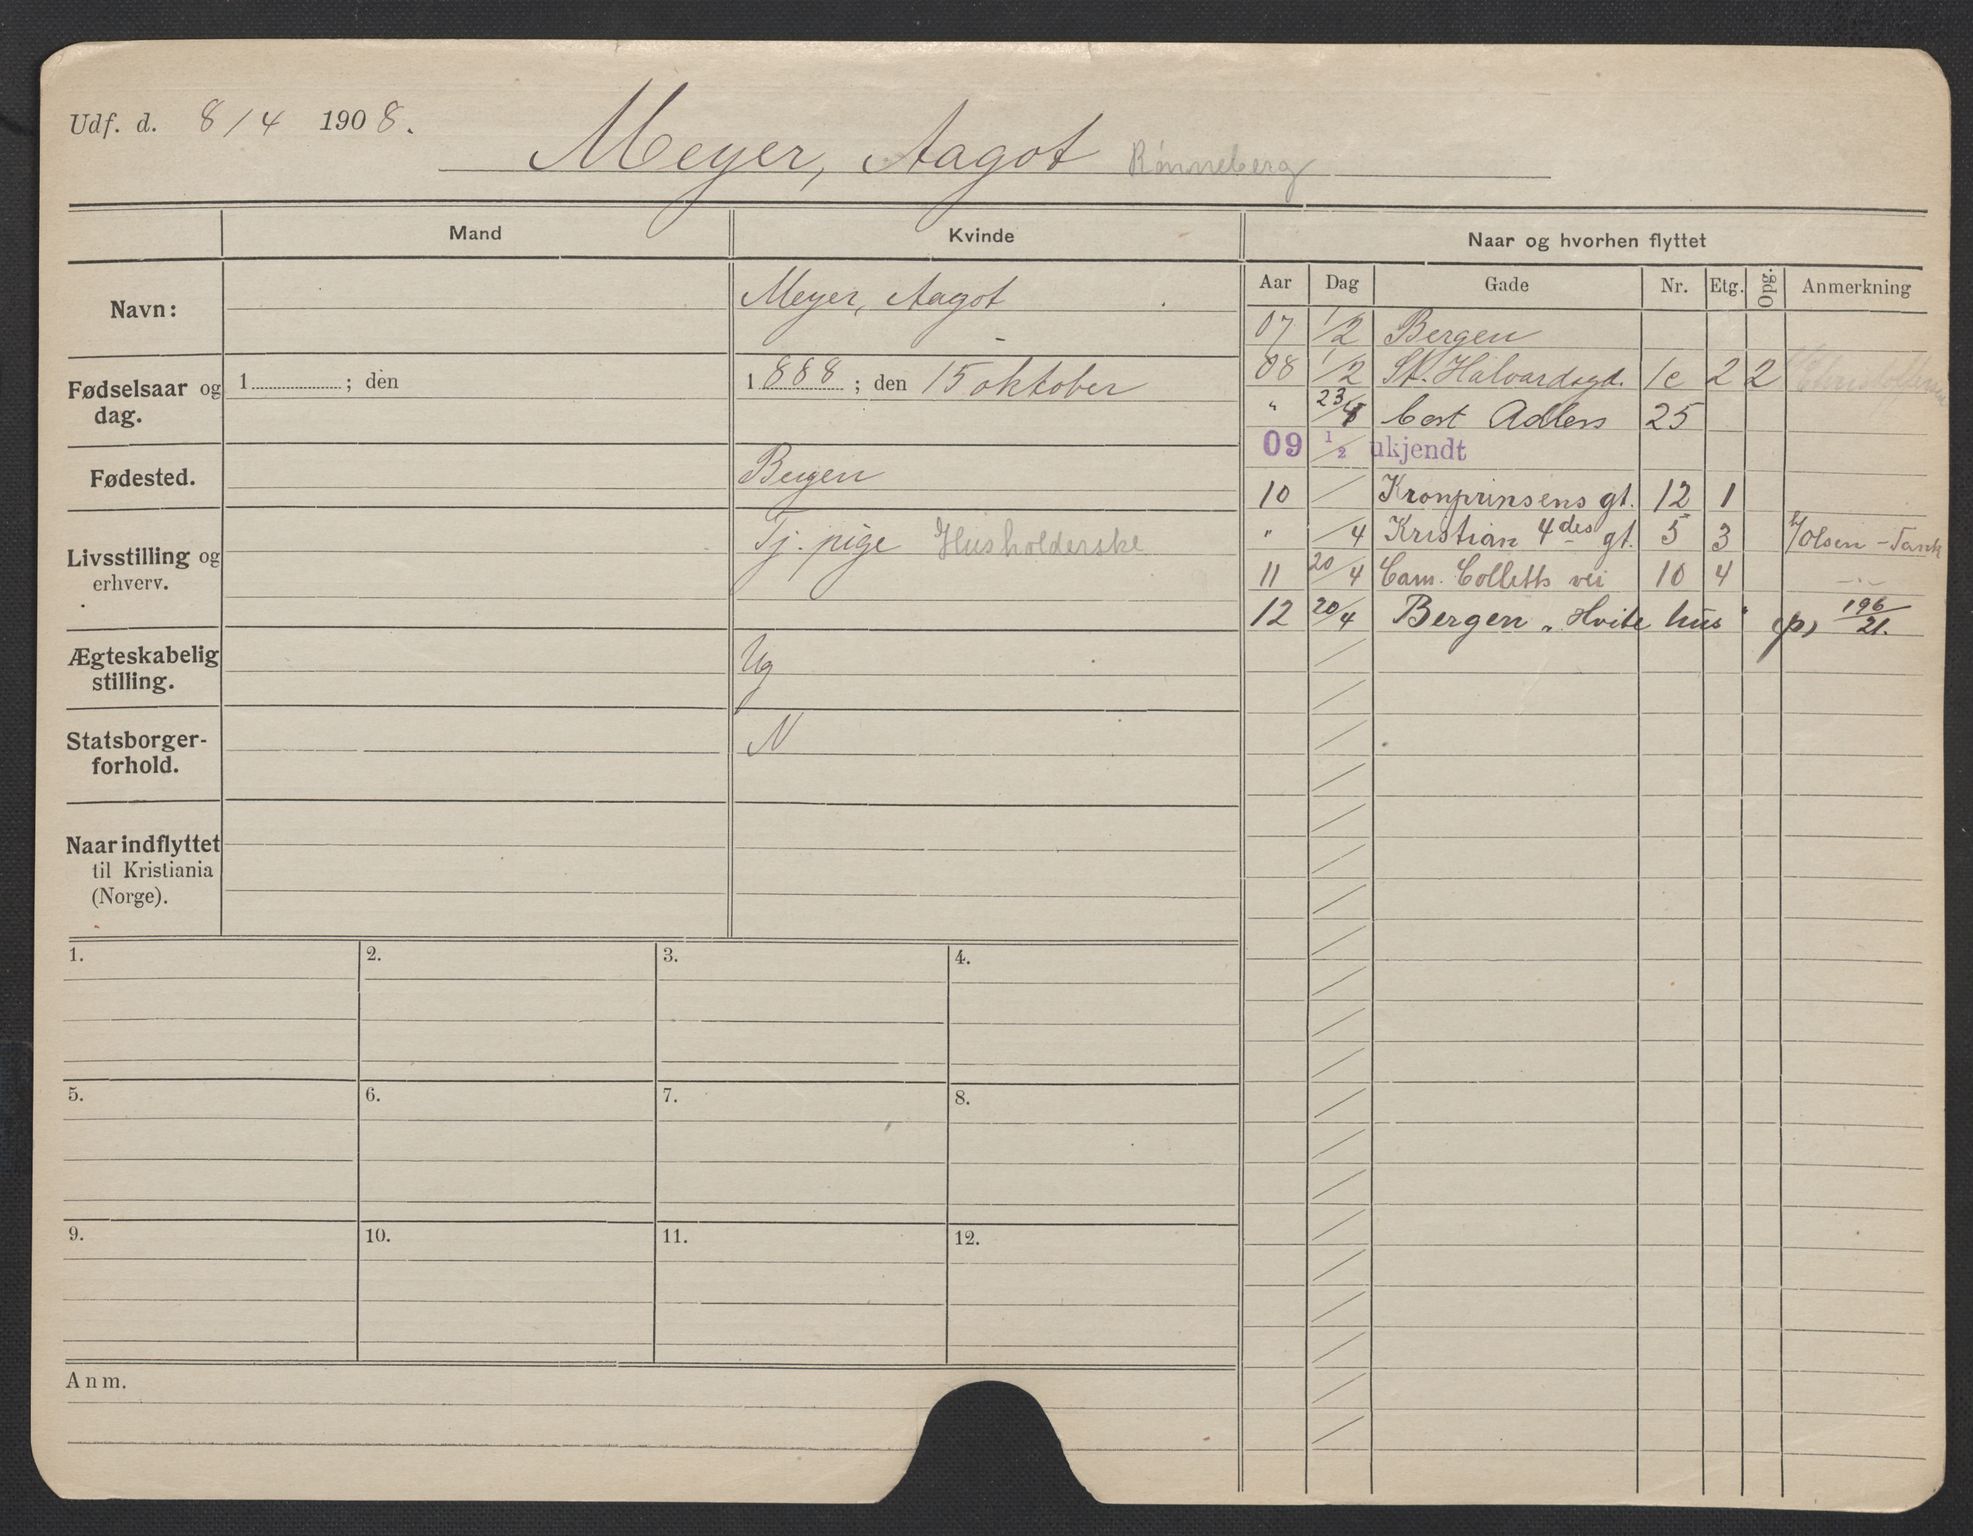 Udf. d. 8/4 1908.
Meyer, Aagot Rønneberg
Mand
Kvinde
Naar og hvorhen flyttet
Aar Dag Gade Nr. Etg. Opg. Anmerkning
Navn:
Meyer, Aagot
Fødselsaar og dag.
1 ; den
1888; den 15 oktober
Fødested.
Bergen
Livsstilling og erhverv.
Tj. pige Husholderske
Ægteskabelig stilling.
Ug
Statsborger-
forhold.
N
Naar indflyttet
til Kristiania
(Norge).
07 1/2 Bergen
08 1/2 St. Halvardsgd. 1c 2 2
" 23/4 Cort Adlers 25
09 1/2 ukjendt
10 / Kronprinsens gt. 12 1
" /4 Kristian 4des gt. 5 3 b/Olsen - Tank
11 20/4 Cam. Colletts vei 10 4 -"-
12 20/4 Bergen „Hvite hus" (p) 196/21.
1. 2. 3. 4.
5. 6. 7. 8.
9. 10. 11. 12.
Anm.